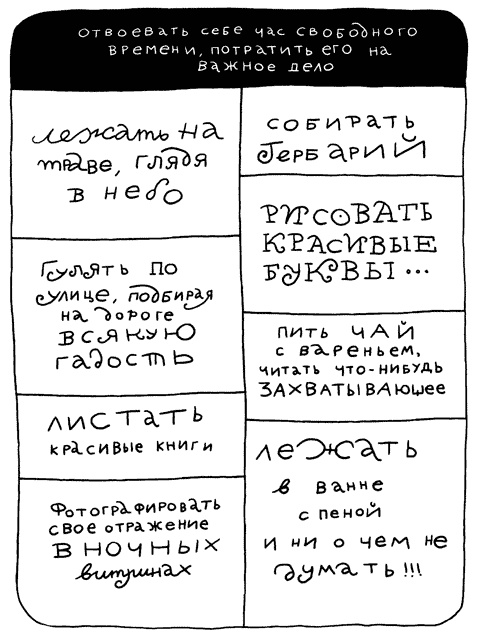 отвоевать себе час свободного
времени, потратить его на
важное дело
лежать на
траве, глядя
в небо
гулять по
улице, подбирая
на дороге
всякую
гадость
листать
красивые книги
Фотографировать
свое отражение
в ночных
витринах
собирать
гербарий
рисовать
красивые
буквы...
пить чай
с вареньем,
читать что-нибудь
захватывающее
лежать
в ванне
с пеной
и ни о чем не
думать!!!